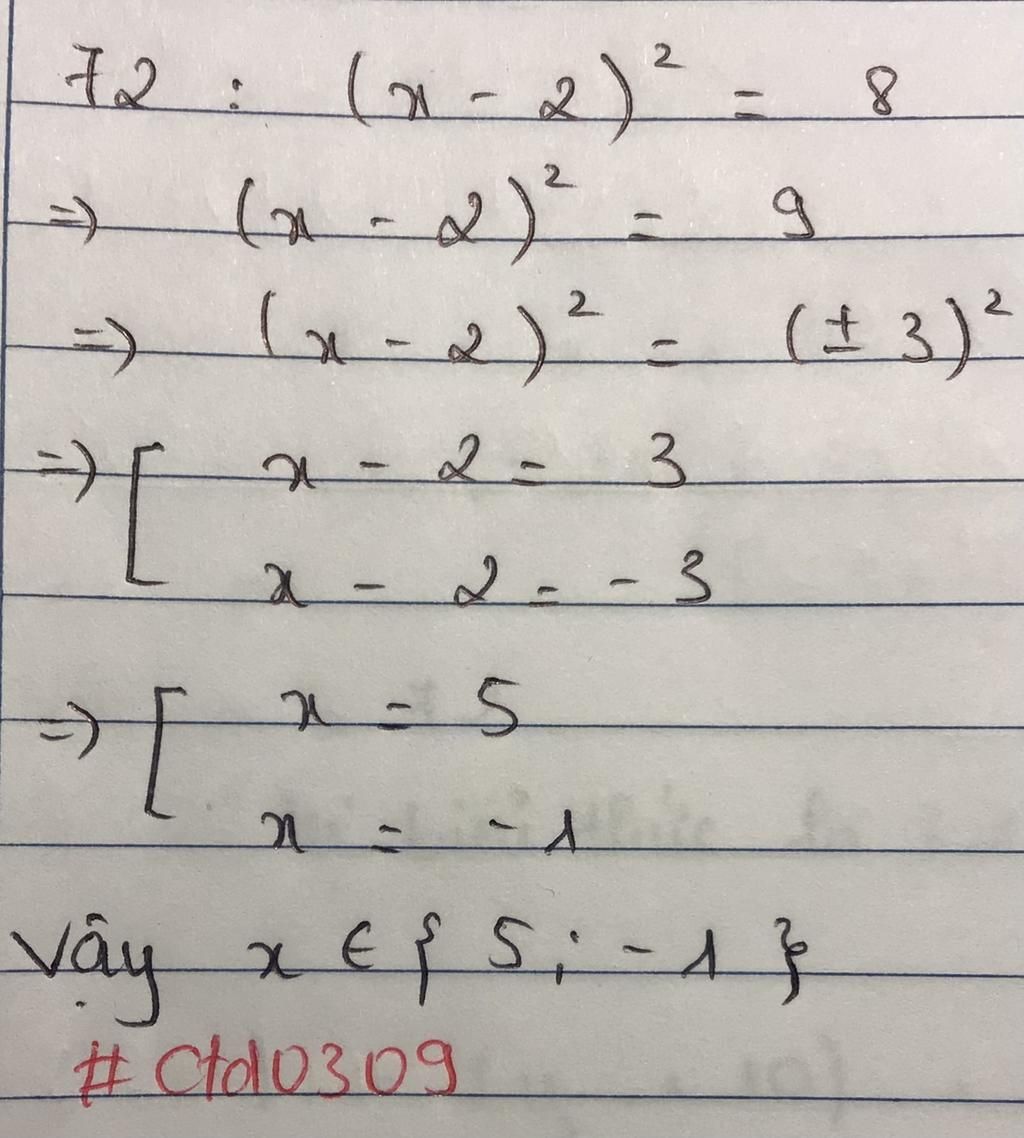 72 : (x - 2)² = 8
=> (x - 2)² = 9
=> (x - 2)² = (± 3)²
=> [ x - 2 = 3
x - 2 = - 3
=> [ x = 5
x = - 1
Vậy x ∈ { 5 ; - 1 }
# Ctd0309